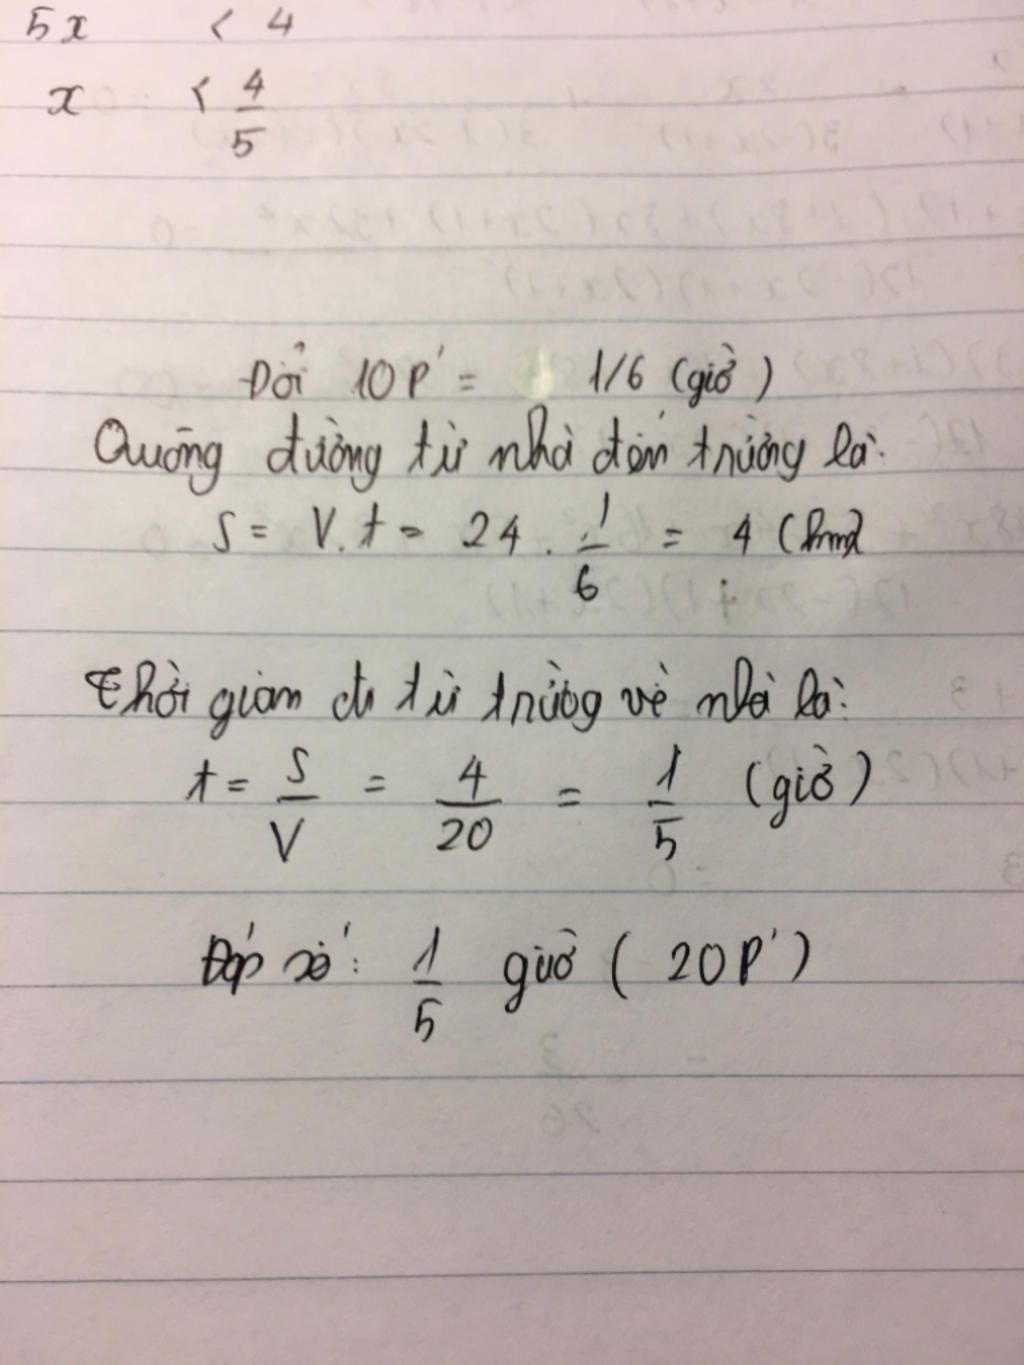 5x < 4
x < 4/5
Đổi 10p' = 1/6 (giờ)
Quãng đường từ nhà đến trường là:
S = V.t = 24 . 1/6 = 4 (km)
Thời gian đi từ trường về nhà là:
t = S/V = 4/20 = 1/5 (giờ)
Đáp số: 1/5 giờ (20p')